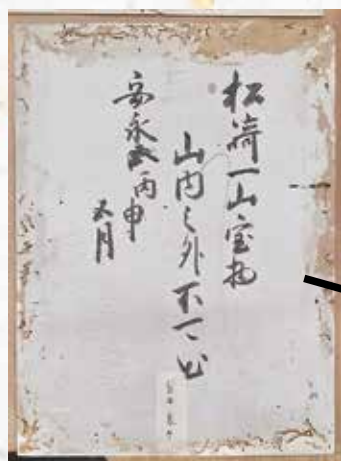 松﨑一山宝物
山内之外不可出
安永五丙申
五月